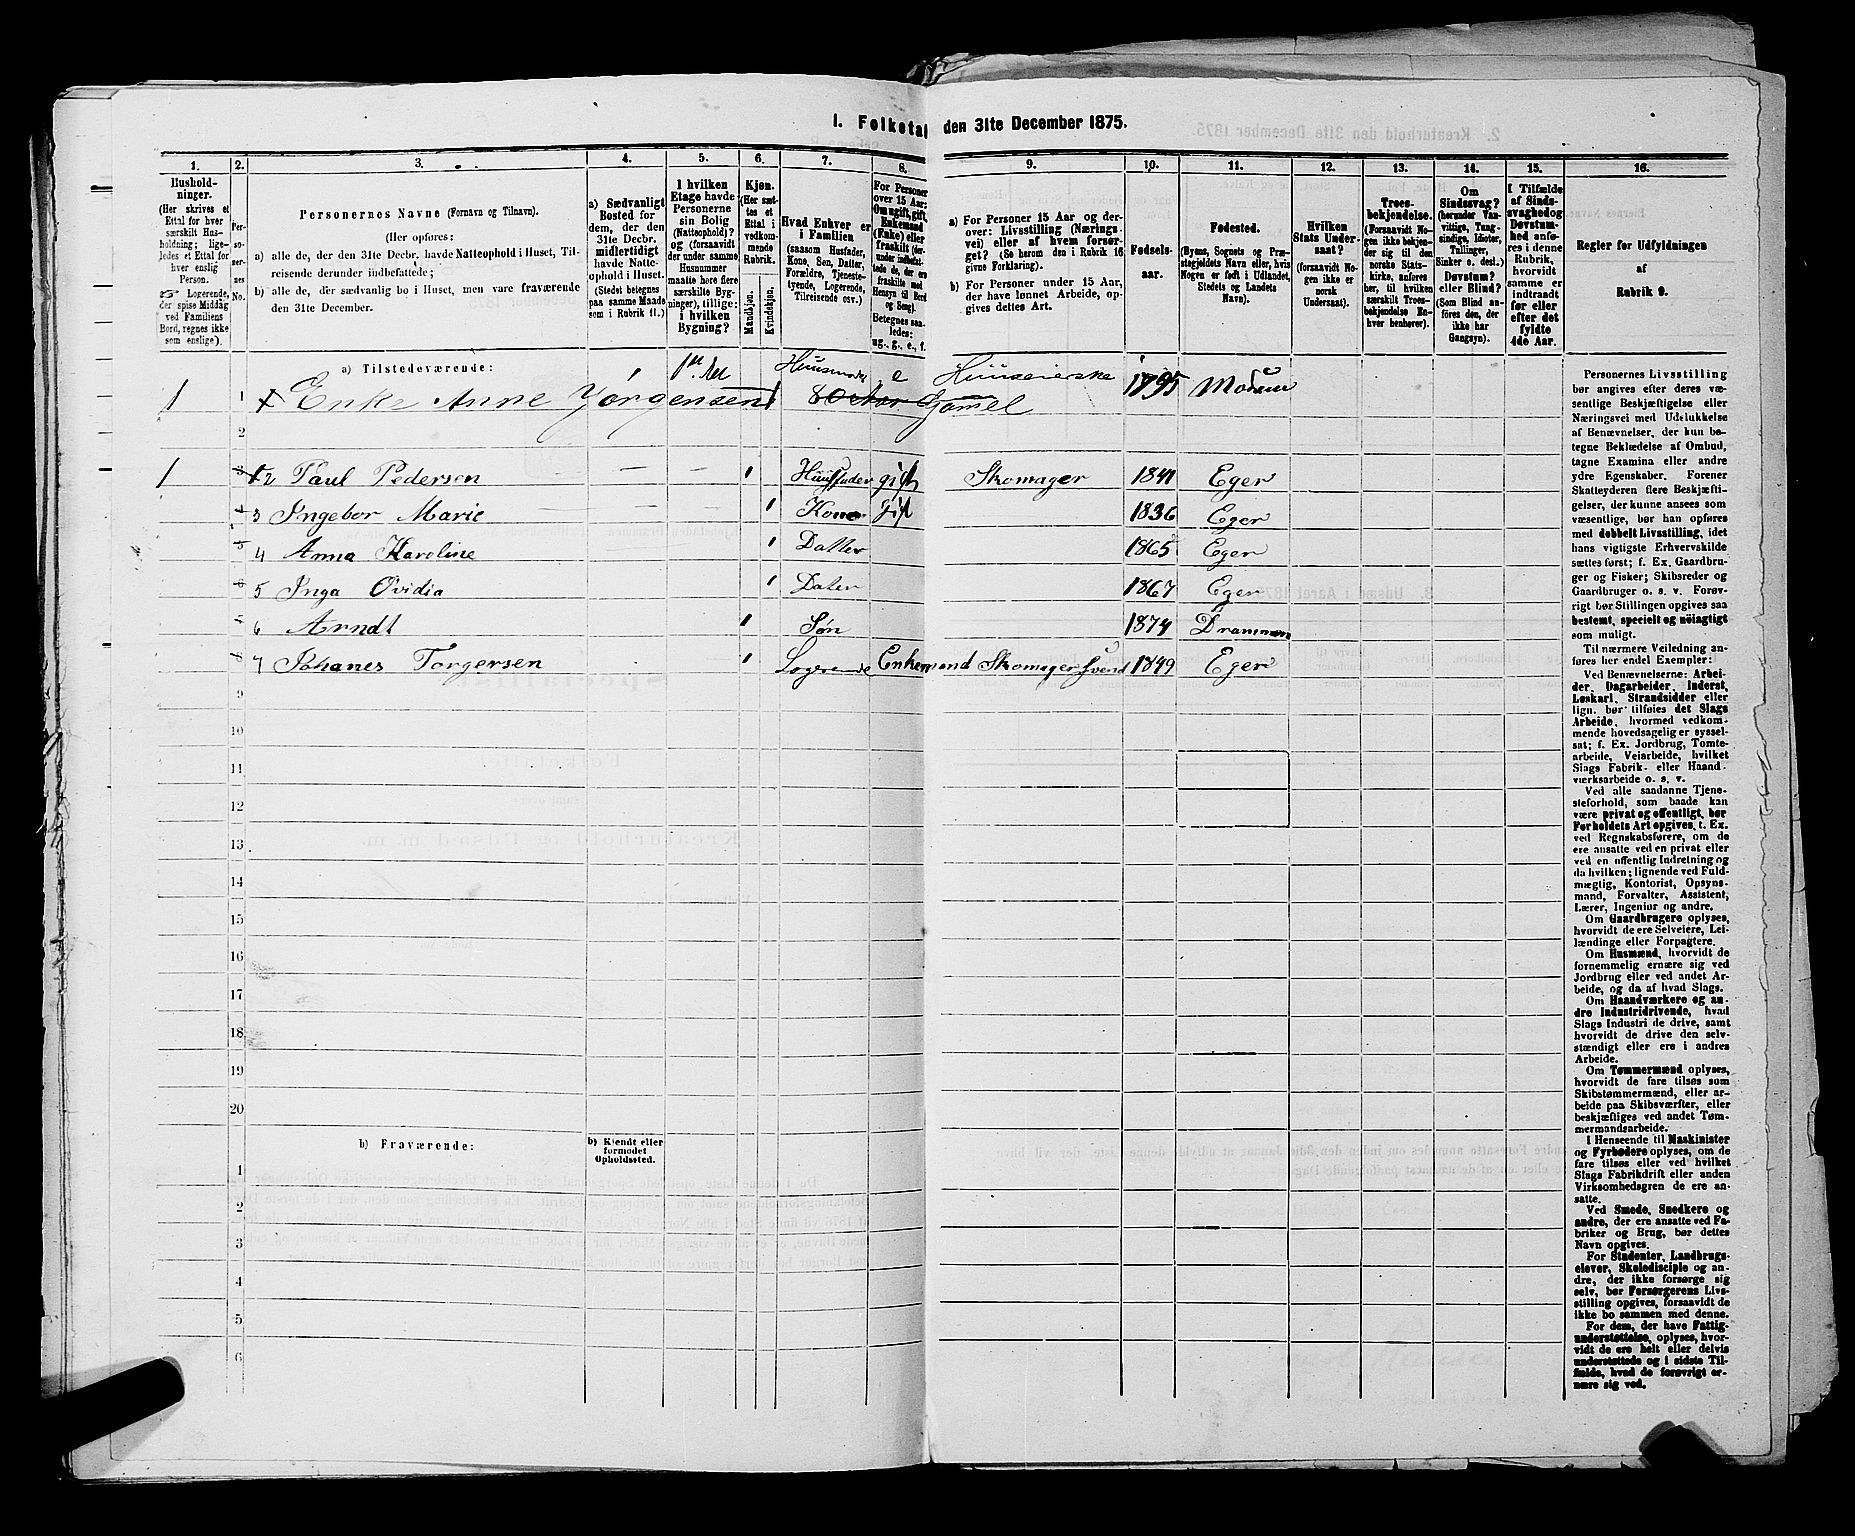 1. Folketal den 31te December 1875.
1. 2. 3. 4. 5. 6. 7. 8. 9. 10. 11. 12. 13. 14. 15. 16.
Husholdninger.
(Her skrives et
Ettal for hver
særskilt Husholdning;
ligeledes et Ettal for
hver enslig
Person.
☞ Logerende,
der spise Middag
ved Familiens
Bord, regnes ikke
som enslige).
Personernes No.
Personernes Navne (Fornavn og Tilnavn).
(Her opføres:
a) alle de, der den 31te Decbr. havde Natteophold i Huset, Tilreisende derunder indbefattede;
b) alle de, der sædvanlig bo i Huset, men vare fraværende
den 31te December.
a) Sædvanligt
Bosted for
dem, der den
31te Decbr.
midlertidigt
havde Natteophold
i Huset.
(Stedet betegnes
paa samme Maade
som i Rubrik 11.)
I hvilken
Etage havde
Personerne
sin Bolig
(Natteophold)?
og (forsaavidt
der under samme
Husnummer
maatte høre flere
særskilte Bygninger),
tillige:
i hvilken
Bygning?
Kjøn.
(Her sættes et
Ettal i
vedkommende
Rubrik.
Mandkjøn.
Kvindekjøn.
Hvad Enhver er
i Familien
(saasom Husfader,
Kone, Søn, Datter,
Forældre, Tjenestetyende,
Logerende,
Tilreisende osv.)
For Personer
over 15 Aar;
Om ugift, gift,
Enkemand
(Enke) eller
fraskilt
Betegnes saaledes:
ug., g., e., f.
a) For Personer 15 Aar og derover:
Livsstilling (Næringsvei)
eller af hvem forsørget?
(Se herom den i Rubrik 16
givne Forklaring).
b) For Personer under 15 Aar,
der have lønnet Arbeide, opgives
dettes Art.
Fødselsaar.
Fødested.
(Byens, Sognets og Præstegjeldets
Navn eller, hvis
Nogen er født i Udlandet,
Stedets og Landets
Navn).
Hvilken
Stats Undersaat?
(forsaavidt Nogen
ikke er
norsk
Undersaat).
Troesbekjendelse.
(Forsaavidt Nogen
ikke bekjender
sig til den
norske Statskirke,
anføres
her, til hvilken
særskilt Troesbekjendelse
Enhver henhører).
Om
Sindssvag?
(herunder Vanvittige,
Tungsindige,
Idioter,
Tullinger,
Sinker o. desl.).
Døvstum?
eller Blind?
(Som Blind anføres
den, der
ikke har
Gangsyn).
I Tilfælde
af Sindssvaghed
og
Døvstumhed
anføres
i denne
Rubrik,
hvorvidt
samme er
indtraadt
før eller
efter det
fyldte
4de Aar.
Regler for Udfyldningen
af
Rubrik 9.
a) Tilstedeværende:
1 1 Enke Anne Jørgensen 1 e Huuseierske Gamel 1795 Modum
2
1 2 Paul Pedersen — — 1 Huusfader gift Skomager 1841 Eger
3 Ingebor Marie — — 1 Kone gift 1836 Eger
4 Anna Karoline 1 Datter 1865 Eger
5 Inga Ovidia 1 Dater 1867 Eger
6 Arndt 1 Søn 1874 Drammen
7 Johanes Torgersen 1 Logerende Enkemand Skomagersvend 1849 Eger
9
10
11
12
13
14
15
16
17
18
19
20
b) Fraværende:
b) Kjendt eller
formodet
Opholdssted.
1
2
3
4
5
6
Personernes Livsstilling
bør angives efter deres væsentlige
Beskjæftigelse eller
Næringsvei med Udelukkelse
af Benævnelser, der kun betegne
Beklædelse af Ombud,
tagne Examina eller andre
ydre Egenskaber. Forener
Skatteyderen flere Beskjæftigelser,
der kunne ansees som
væsentlige, bør han opføres
med dobbelt Livsstilling, idet
hans vigtigste Erhvervskilde
sættes først; f. Ex. Gaardbruger
og Fisker; Skibsreder og
Gaardbruger o. s. v. Forøvrigt
bør Stillingen opgives saa
bestemt, specielt og nöiagtigt
som muligt.
Til nærmere Veiledning anføres
her endel Exempler:
Ved Benævnelserne: Arbeider,
Dagarbeider, Inderst,
Løskarl, Strandsidder eller
lign. bør tilføies det Slags
Arbeide, hvormed vedkommende
hovedsagelig er sysselsat;
f. Ex. Jordbrug, Tomtearbeide,
Veiarbeide, hvilket
Slags Fabrik- eller Haandværksarbeide
o. s. v.
Ved alle saadanne Tjenesteforhold,
som baade kan
være privat og offentligt, bør
Forholdets Art opgives, t. Ex.
ved Regnskabsførere, om de
ere ansatte ved en privat eller
ved en offentlig Indretning og
da hvilken; lignende ved Fuldmægtig,
Kontorist, Opsynsmand,
Forvalter, Assistent,
Lærer, Ingeniør og andre.
Om Gaardbrugere oplyses,
hvorvidt de ere Selveiere, Leilændinge
eller Forpagtere.
Om Husmænd, hvorvidt de
fornemmelig ernære sig ved
Jordbrug eller ved andet Arbeide,
og da af hvad Slags.
Om Haandværkere og andre
Industridrivende, hvad
Slags Industri de drive, samt
hvorvidt de drive den selvstændigt
eller ere i andres
Arbeide.
Om Tømmermænd oplyses,
hvorvidt de fare tilsøs som
Skibstømmermænd, eller arbeide
paa Skibsværfter, eller
beskjæftiges ved andet Tømmermandsarbeide.
I Henseende til Maskinister
og Fyrbødere oplyses, om de
fare tilsøs eller ved hvilket
Slags Fabrikdrift eller anden
Virksomhedsgren de ere ansatte.
Ved Smede, Snedkere og
andre, der ere ansatte ved Fabriker
og Brug, bør dettes
Navn opgives.
For Studenter, Landbrugselever,
Skoledisciple og andre,
der ikke forsørge sig
selv, bør Forsørgerens Livsstilling
opgives, forsaavidt de
ikke bo sammen med denne.
For dem, der have Fattigunderstøttelse,
oplyses, hvorvidt
de ere helt eller delvis
understøttede og i sidste Tilfælde,
hvad de forøvrigt ernære
sig ved.